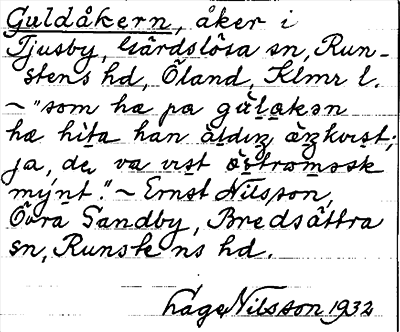 Guldåkern, åker i
Tjusby, Gärdslösa sn, Run-
stens hd, Öland, Klmr l.
~ "som ha pa gúlakən
hæ hita han àldɩz àŋkvɩst;
ja, de va vɩst östromæsk
mýnt." ~ Ernst Nilsson,
Övra Sandby, Bredsättra
sn, Runstens hd.
Åge Nilsson 1932